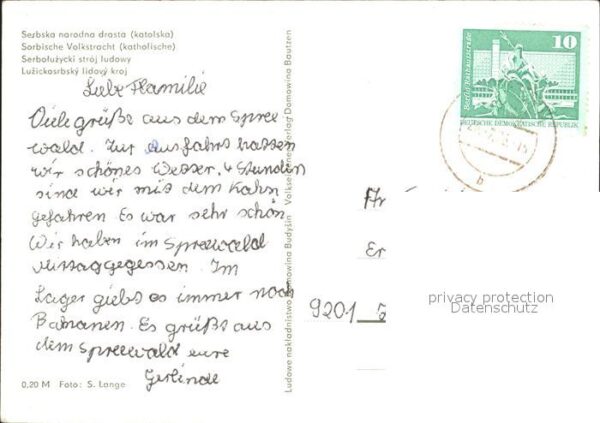 Serbska narodna drasta (katolska)
Sorbische Volkstracht (katholische)
Serbołużycki strój ludowy
Lužickosrbský lidový kroj
Liebe Flamilie
Viele grüße aus dem Spree
wald. Zur Ausfahrt hatten
wir schönes Wetter. 4 Stunden
sind wir mit dem Kahn
gefahren Es war sehr schön
Wir haben im Spreewald
mittaggegessen. Im
Lager giebt es immer noch
Bananen. Es grüßt aus
dem Spreewald eure
Gerlinde
0,20 M Foto: S. Lange
Ludowe nakładnistwo Domowina Budyšin Volkseigener Verlag Domowina Bautzen
10
Berlin, Rathausstraße
DEUTSCHE DEMOKRATISCHE REPUBLIK
b
Er
9201
privacy protection
Datenschutz